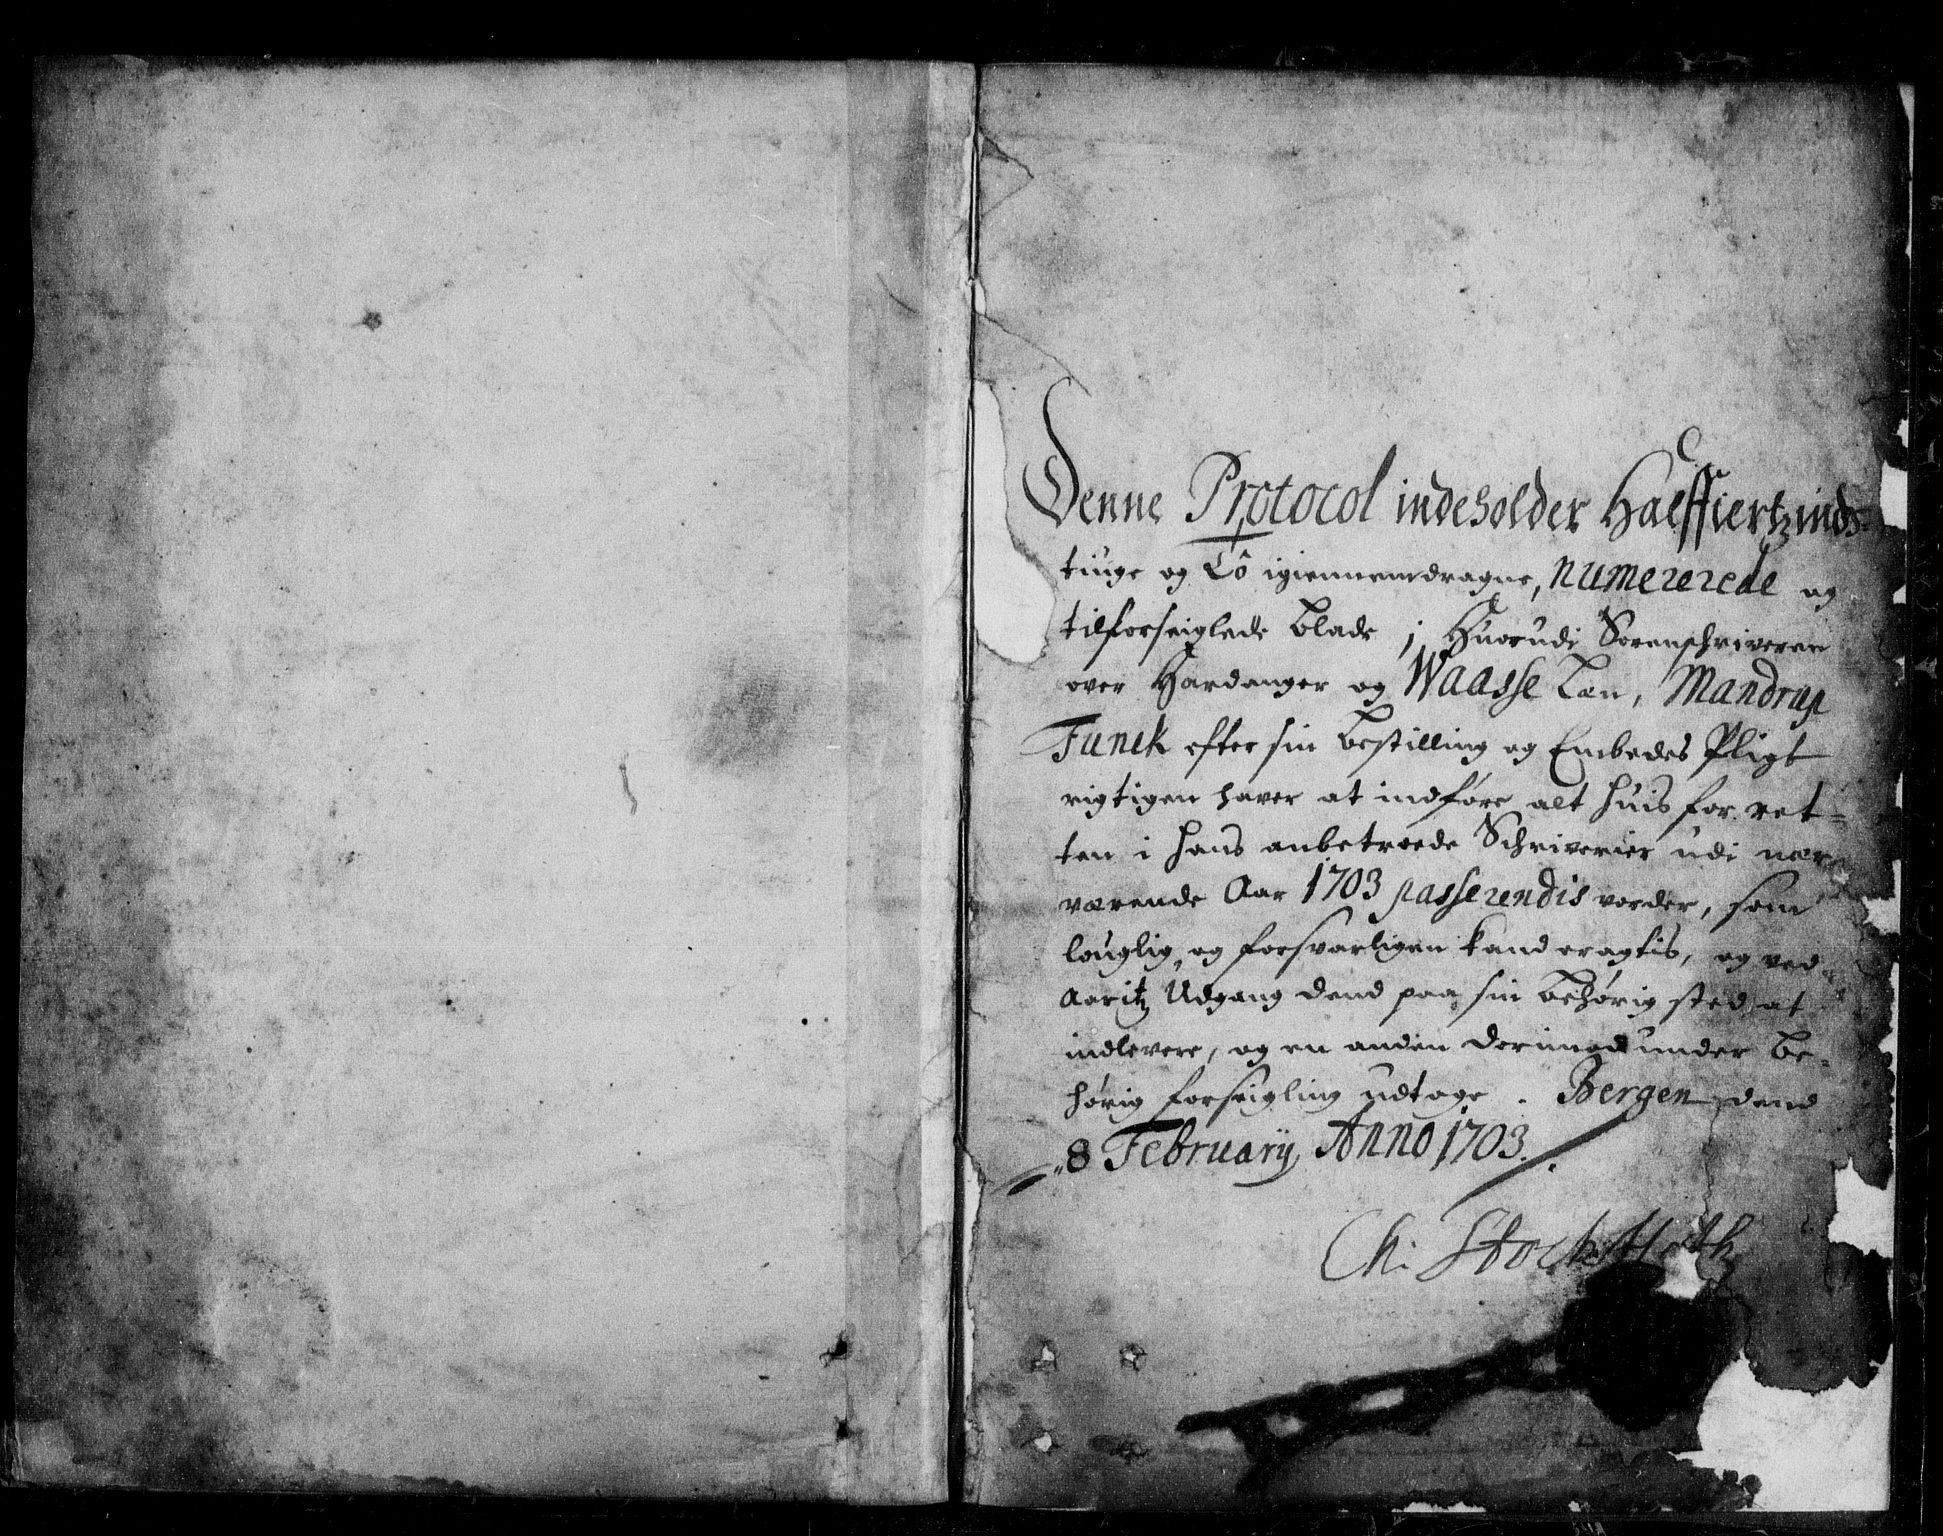 Denne Protocol indeholder Halffiertzinds
tiuge og Tô igiennemdragne, numererede og
tilforseiglede blade, Huorudi Sorenschriveren
over Hardanger og Waasse Læn, Mandrup
Funck efter sin bestilling og Embedes Pligt
rigtigen haver at indføre alt huis for ret=
ten i hans anbetroede Schriverier udi nær=
værende Aar 1703 passerendis vorder, som
louglig og forsvarligen kand eragtis, og ved
Aaritz Udgang dend paa sin behørig sted at
indlevere, og en anden derimod under be=
hørig forseigling udtage. Bergen dend
8 February Anno 1703.
Ch: Stockfleth